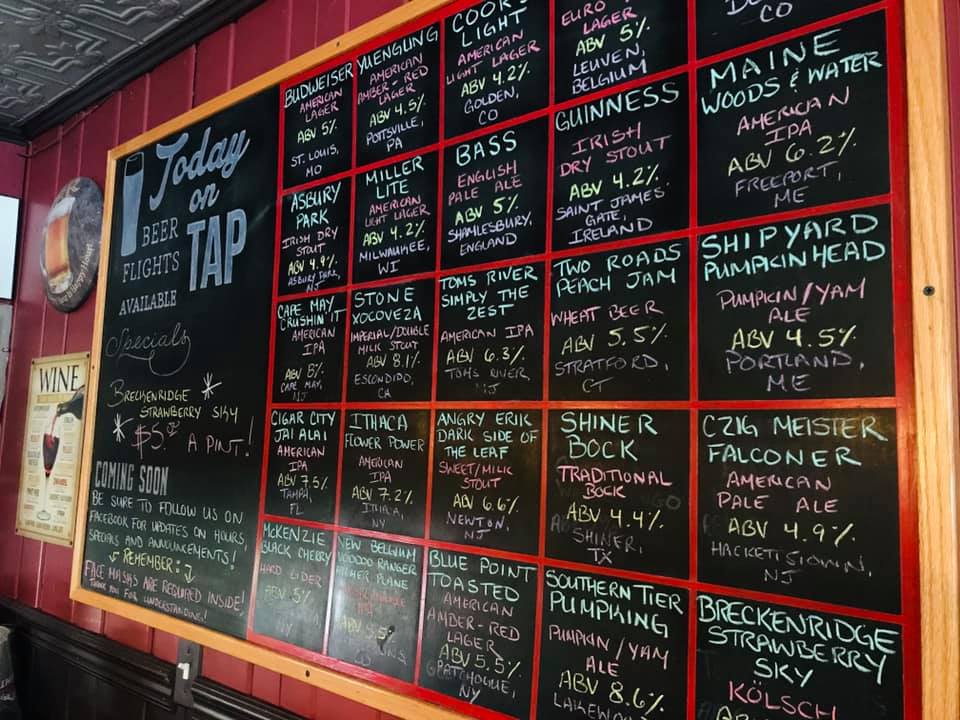 Today
on
TAP
BEER
FLIGHTS
AVAILABLE
Specials
BRECKENRIDGE
STRAWBERRY SKY
$5.00
A PINT!
COMING SOON
BE SURE TO FOLLOW US ON
FACEBOOK FOR UPDATES ON HOURS,
SPECIALS AND ANNOUNCEMENTS!
REMEMBER:
FACE MASKS ARE REQUIRED INSIDE!
THANK YOU FOR UNDERSTANDING!
WINE
BUDWEISER
AMERICAN
LAGER
ABV 5%
ST. LOUIS,
MO
YUENGLING
AMERICAN
AMBER-RED
LAGER
ABV 4.5%
POTTSVILLE,
PA
LIGHT
AMERICAN
LIGHT LAGER
ABV 4.2%
GOLDEN,
CO
EURO
LAGER
ABV 5%
LEUVEN,
BELGIUM
CO
ASBURY
PARK
IRISH DRY
STOUT
ABV 4.9%
ASBURY PARK,
NJ
MILLER
LITE
AMERICAN
LIGHT LAGER
ABV 4.2%
MILWAUHEE,
WI
BASS
ENGLISH
PALE ALE
ABV 5%
SHAMLESBURY,
ENGLAND
GUINNESS
IRISH
DRY STOUT
ABV 4.2%
SAINT JAMES'
GATE,
IRELAND
MAINE
WOODS & WATER
AMERICAN
IPA
ABV 6.2%
FREEPORT,
ME
CAPE MAY
CRUSHIN' IT
AMERICAN
IPA
ABV 8%
CAPE MAY,
NJ
STONE
XOCOVEZA
IMPERIAL/DOUBLE
MILK STOUT
ABV 8.1%
ESCONDIDO,
CA
TOMS RIVER
SIMPLY THE
ZEST
AMERICAN IPA
ABV 6.3%
TOMS RIVER,
NJ
TWO ROADS
PEACH JAM
WHEAT BEER
ABV 5.5%
STRATFORD,
CT
SHIPYARD
PUMPKINHEAD
PUMPKIN/YAM
ALE
ABV 4.5%
PORTLAND,
ME
CIGAR CITY
JAI ALAI
AMERICAN
IPA
ABV 7.5%
TAMPA,
FL
ITHACA
FLOWER POWER
AMERICAN
IPA
ABV 7.2%
ITHACA,
NY
ANGRY ERIK
DARK SIDE OF
THE LEAF
SWEET/MILK
STOUT
ABV 6.6%
NEWTON,
NJ
SHINER
BOCK
TRADITIONAL
BOCK
ABV 4.4%
SHINER,
TX
CZIG MEISTER
FALCONER
AMERICAN
PALE ALE
ABV 4.9%
HACKETTSTOWN,
NJ
MCKENZIE
BLACK CHERRY
HARD CIDER
ABV 5%
NY
NEW BELGIUM
VOODOO RANGER
HIGHER PLANE
BLUE POINT
TOASTED
AMERICAN
AMBER-RED
LAGER
ABV 5.5%
PATCHOGUE,
NY
SOUTHERN TIER
PUMKING
PUMPKIN/YAM
ALE
ABV 8.6%
BRECKENRIDGE
STRAWBERRY
SKY
KÖLSCH